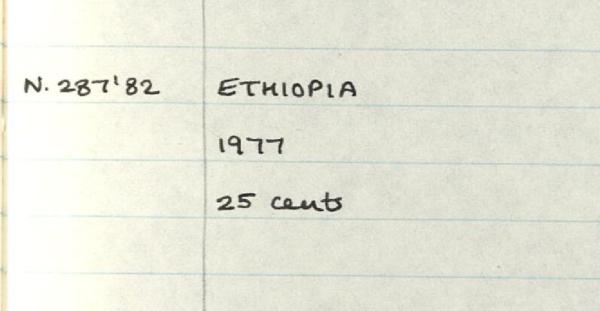 N. 287'82 ETHIOPIA
1977
25 cents